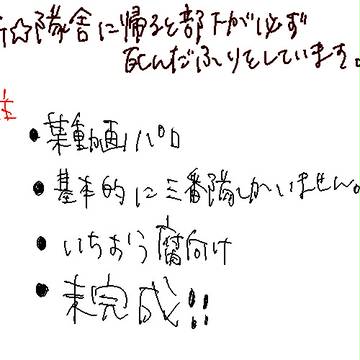 ☆隊舎に帰ると部下が必ず
死んだふりをしています。
注
● 某動画パロ
● 基本的に三番隊しかいません。
● いちおう腐向け
● 未完成!!